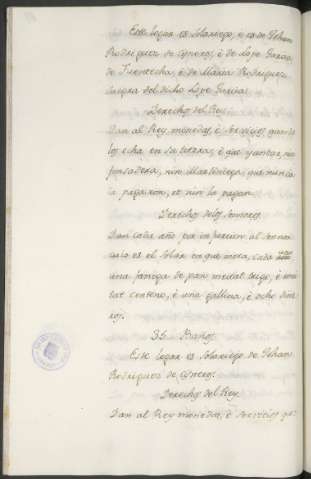 Este logar es solariego, e es de Johan
Rodriguez de Cisneros, é de Lope Garcia
de Fuentecha, é de Maria Rodriguez
suegra del dicho Lope Garcia.
Derechos del Rey.
Dan al Rey monedas, é servicios, quando
los echa en su tierra, é que yantar, nin
fonsadera, nin Martiniega, que nunca
la pagaron, et nin la pagan.
Derechos delos Señores.
Dan cada año por infurcion al Sennor
cuio es el Solar en que mora, cada
una fanega de pan meitat trigo, é mei
tat centeno, é una gallina, é ocho dine
ros.
35. Bustos
Este logar es solariego de Johan
Rodriguez de Cisneros.
Derechos del Rey.
Dan al Rey monedas, é servicios qº